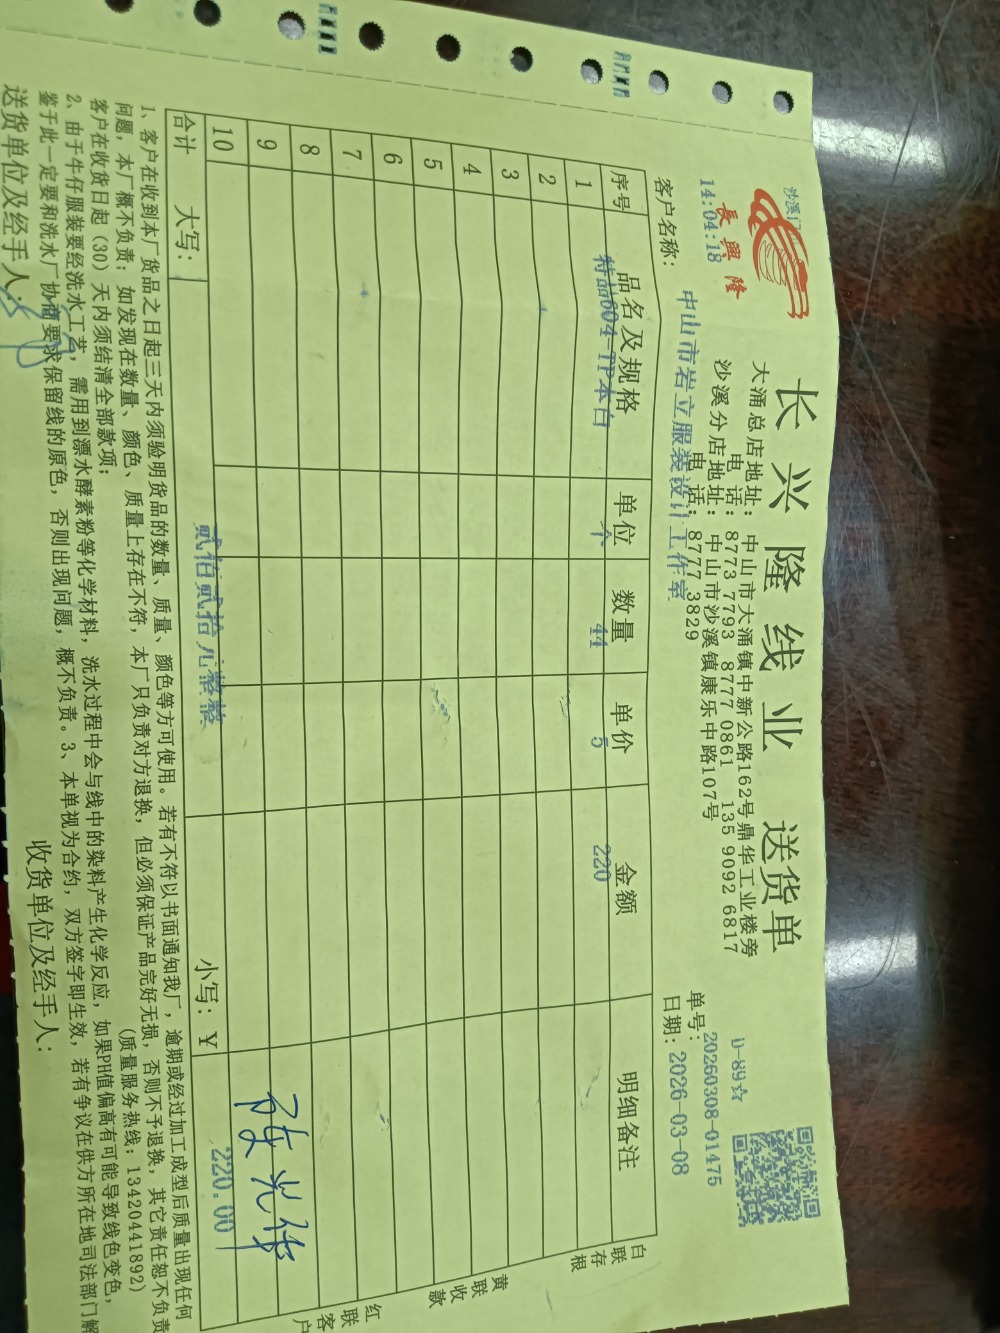 長興隆
沙溪门
14:04:18
长兴隆线业 送货单
大涌总店地址：中山市大涌镇中新公路162号鼎华工业楼旁
电 话：8773 7793 8777 0861 135 9092 6817
沙溪分店地址：中山市沙溪镇康乐中路107号
电 话：8777 3829
D-89☆
单号：20260308-01475
日期：2026-03-08
客户名称：中山市岩立服装设计工作室
序号 品名及规格 单位 数量 单价 金额 明细备注
1 特品604-TP本白 个 44 5 220
2
3
4
5
6
7
8
9
10
合计 大写：贰佰贰拾元整整 小写：￥ 220.00
白联存根
黄联收款
红联客户
1、客户在收到本厂货品之日起三天内须验明货品的数量、质量、颜色等方可使用。若有不符以书面通知我厂，逾期或经过加工成型后质量出现任何
问题，本厂概不负责；如发现在数量、颜色、质量上存在不符，本厂只负责对方退换，但必须保证产品完好无损，否则不予退换，其它责任恕不负责
客户在收货日起（30）天内须结清全部款项； （质量服务热线：13420441892）
2、由于牛仔服装要经洗水工艺，需用到漂水酵素粉等化学材料，洗水过程中会与线中的染料产生化学反应，如果PH值偏高有可能导致线色变色，
鉴于此一定要和洗水厂协商要求保留线的原色，否则出现问题，概不负责。3、本单视为合约，双方签字即生效，若有争议在供方所在地司法部门解
送货单位及经手人： 收货单位及经手人：